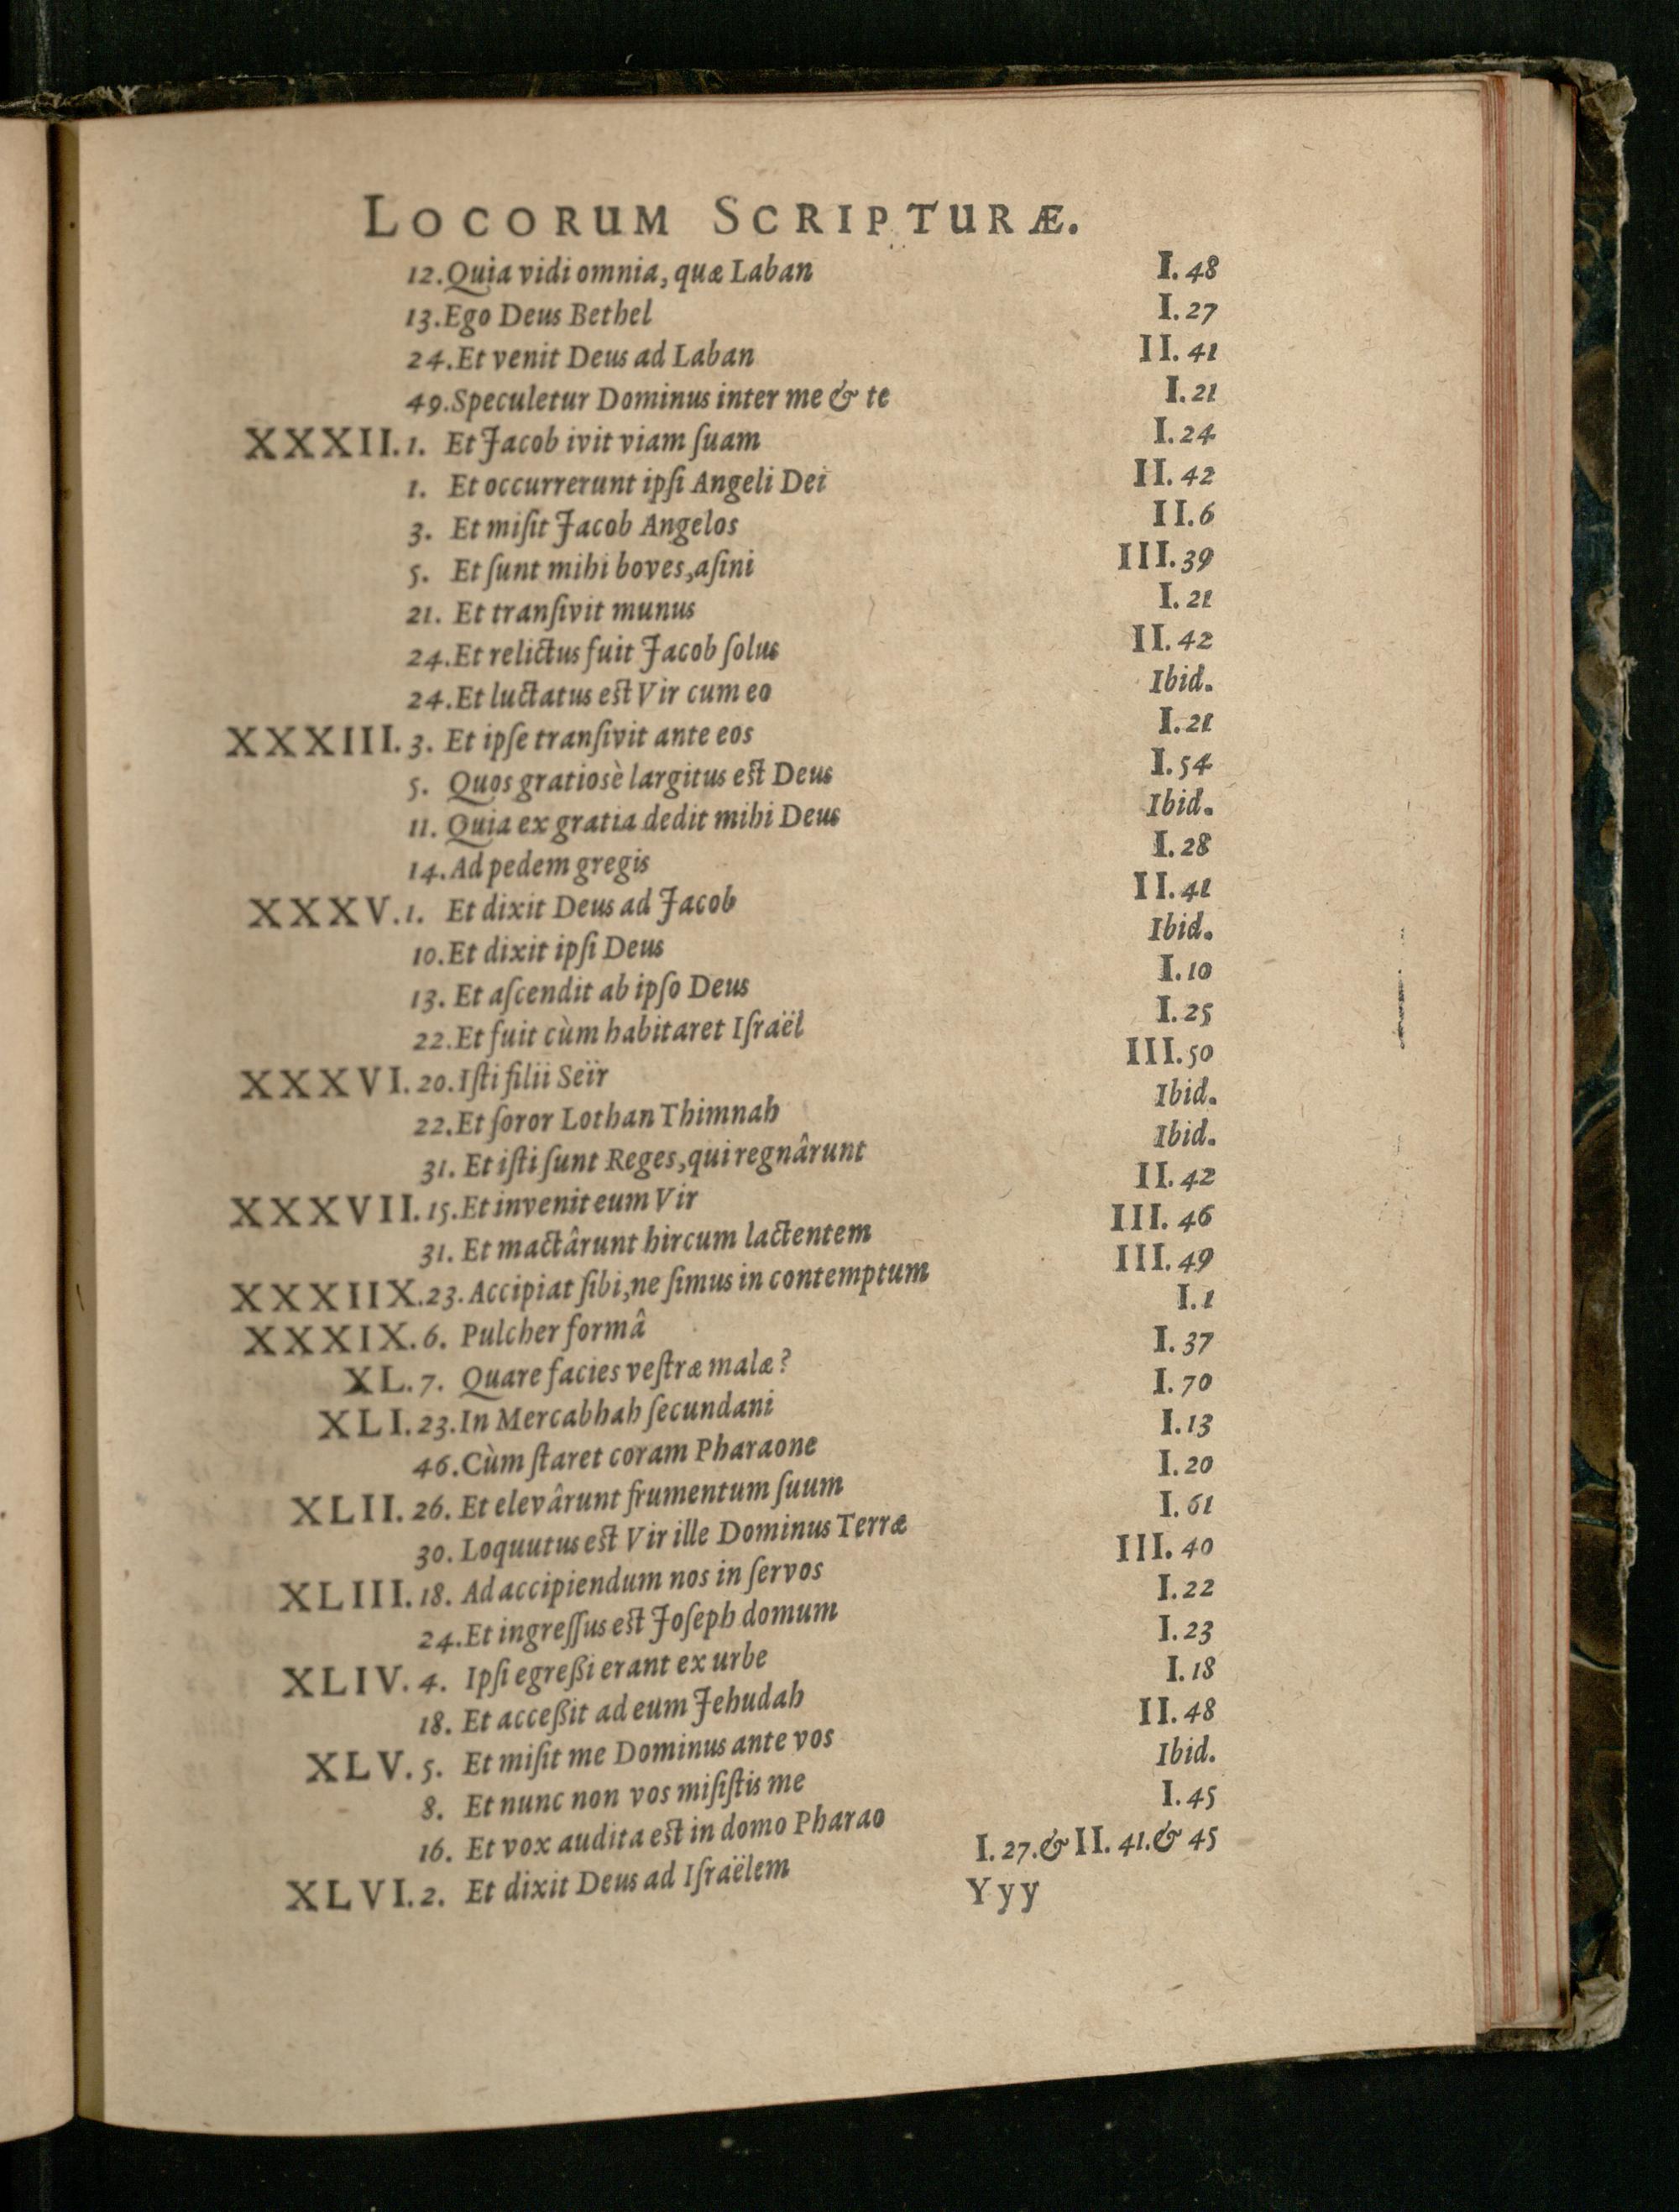 LOCORUM SCRIPTURÆ.
12. Quia vidi omnia, quæ Laban I. 48
13. Ego Deus Bethel I. 27
24. Et venit Deus ad Laban II. 41
49. Speculetur Dominus inter me & te I. 21
XXXII. 1. Et Jacob ivit viam ſuam I. 24
1. Et occurrerunt ipſi Angeli Dei II. 42
3. Et miſit Jacob Angelos II. 6
5. Et ſunt mihi boves, aſini III. 39
21. Et tranſivit munus I. 21
24. Et relictus fuit Jacob ſolus II. 42
24. Et luctatus eſt Vir cum eo Ibid.
XXXIII. 3. Et ipſe tranſivit ante eos I. 21
5. Quos gratiosè largitus eſt Deus I. 54
11. Quia ex gratia dedit mihi Deus Ibid.
14. Ad pedem gregis I. 28
XXXV. 1. Et dixit Deus ad Jacob II. 41
10. Et dixit ipſi Deus Ibid.
13. Et aſcendit ab ipſo Deus I. 10
22. Et fuit cùm habitaret Iſraël I. 25
XXXVI. 20. Iſti filii Seïr III. 50
22. Et ſoror Lothan Thimnah Ibid.
31. Et iſti ſunt Reges, qui regnârunt Ibid.
XXXVII. 15. Et invenit eum Vir II. 42
31. Et mactârunt hircum lactentem III. 46
XXXIIX. 23. Accipiat ſibi, ne ſimus in contemptum III. 49
XXXIX. 6. Pulcher formâ I. 1
XL. 7. Quare facies veſtræ malæ? I. 37
XLI. 23. In Mercabhah ſecundani I. 70
46. Cùm ſtaret coram Pharaone I. 13
XLII. 26. Et elevârunt frumentum ſuum I. 20
30. Loquutus eſt Vir ille Dominus Terræ I. 61
XLIII. 18. Ad accipiendum nos in ſervos III. 40
24. Et ingreſſus eſt Joſeph domum I. 22
XLIV. 4. Ipſi egreßi erant ex urbe I. 23
18. Et acceßit ad eum Jehudah I. 18
XLV. 5. Et miſit me Dominus ante vos II. 48
8. Et nunc non vos miſiſtis me Ibid.
16. Et vox audita eſt in domo Pharao I. 45
XLVI. 2. Et dixit Deus ad Iſraëlem I. 27. & II. 41. & 45
Yyy